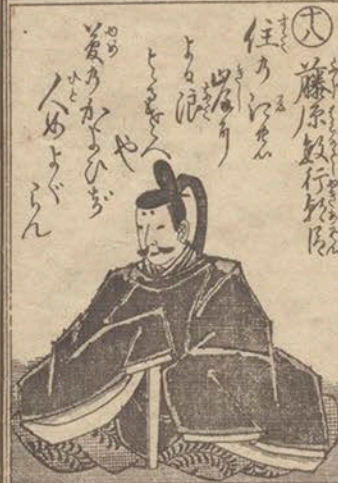 十八
藤原敏行朝臣
住の江の
岸に
よる浪
よるさへ
や
夢のかよひぢ
人めよぐ
らん